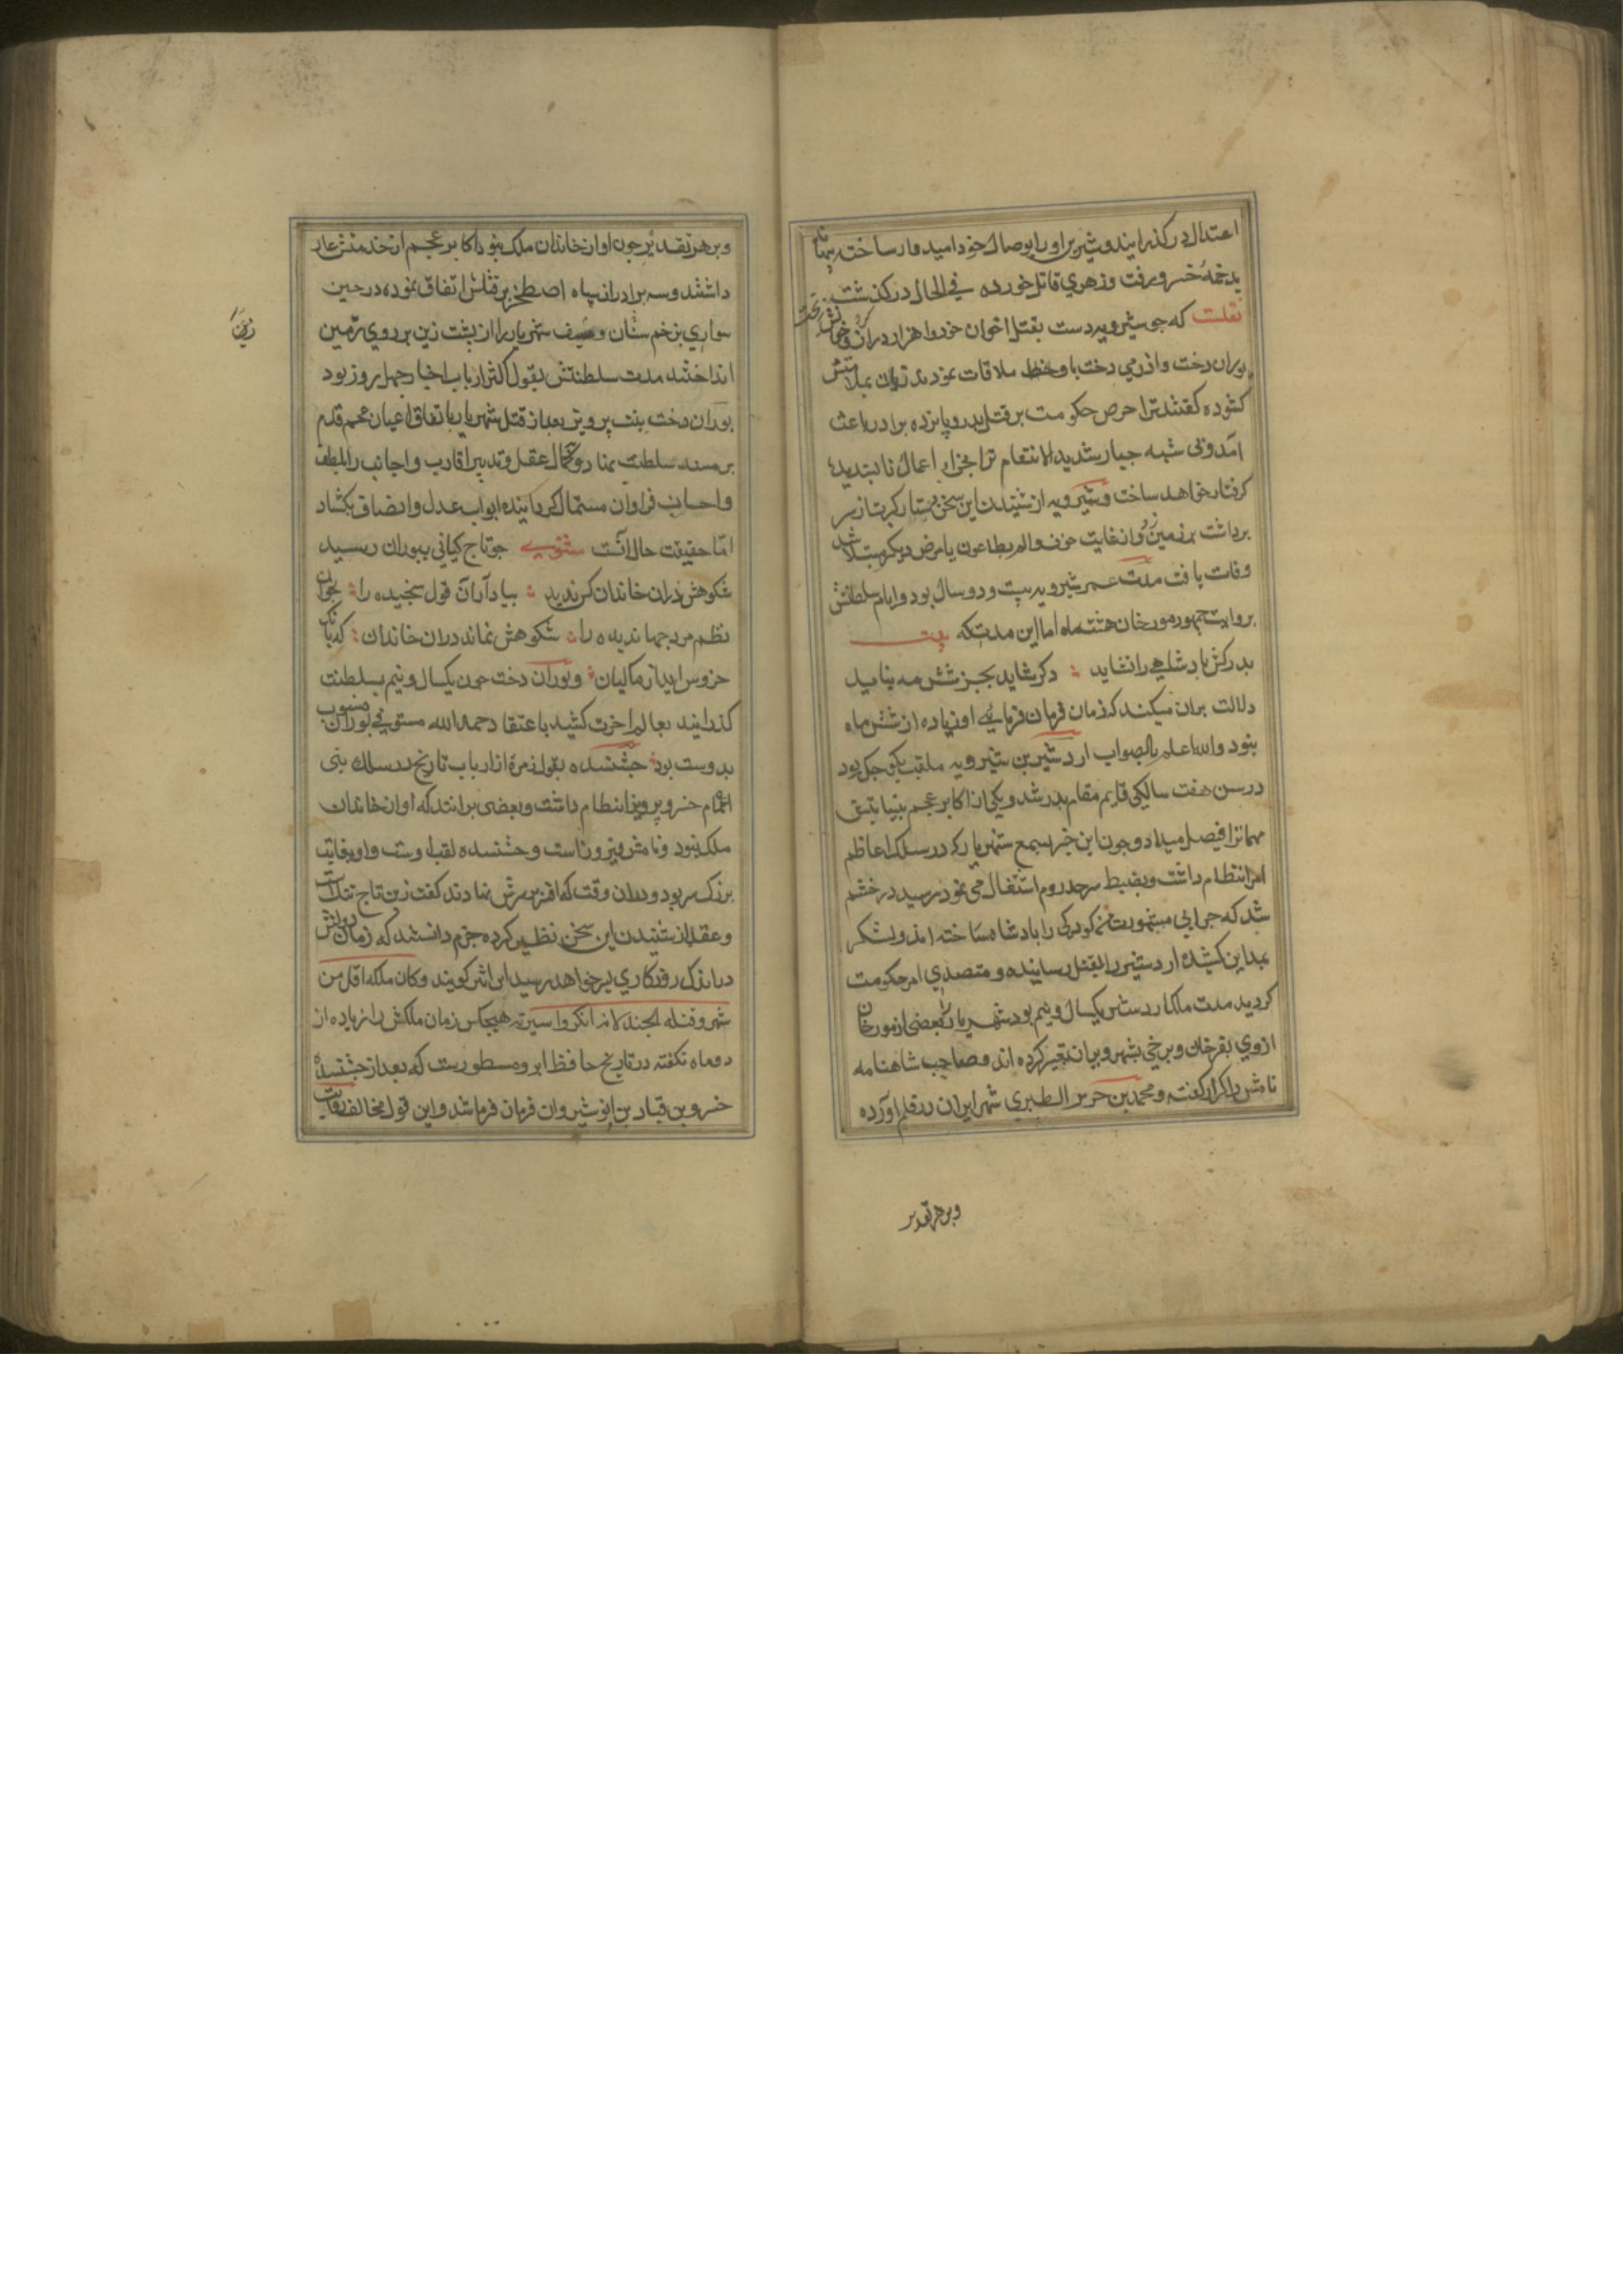 اعتدال در گذرانید و شیرین او را بوصال خود امیدوار ساخته بهانه
بدخمهٔ خسرو رفت و زهری قاتل خورده فی الحال در گذشت
نقلست که چو شیرویه دست بقتل اخوان خود وا هزار دران و خواهرانش
بوران دخت و اذرمی دخت با وی ملاقات نمودند زبان بملامتش
کشوده گفتند ترا حرص حکومت بر قتل پدر و پانزده برادر باعث
آمد و فی شبهه جبار شدید الانتقام ترا بجزای اعمال ناپسندیده
گرفتار خواهد ساخت و شیرویه از شنیدن این سخن بگریست تاج از سر
برداشت بر زمین زد و از غایت حزن و الم بطاعون یا مرض دیگر مبتلا شد
وفات یافت مدت عمر شیرویه بیست و دو سال بود و ایام سلطنتش
بروایت جمهور مورخان هشت ماه اما این مدت که بیت
پدرکش پادشاهی را نشاید دگر شاید بجز شش مه نیاید
دلالت بران میکند که زمان فرمان فرمایی او زیاده از شش ماه
نبود والله اعلم بالصواب اردشیر بن شیرویه ملقب بکوچک بود
در سن هفت سالگی قایم مقام پدر شد و یکی از اکابر عجم بنیابتش
مهمانرا فیصل میداد و چون این خبر بسمع شهریار که در سلک اعاظم
امرا انتظام داشت و بضبط سرحد روم اشتغال می نمود رسید در خشم
شد که چرا بی مشورت من کودکی را پادشاه ساخته اند و لشکر
بمداین کشیده اردشیر را بقتل رسانیده و متصدی امر حکومت
کردید مدت ملک اردشیر یکسال و نیم بود شهریار را بعضی از مورخان
ازوی بفرخان و برخی بشهروبران تعبیر کرده اند و صاحب شاهنامه
نامش را کراز گفته و محمد بن جریر الطبری شهر ایران در قلم آورده
وبر هر تقدیر
وبر هر تقدیر چون او از خاندان ملک نبود اکابر عجم از خدمتش عار
داشتند و سه برادر از سپاه اصطخر بر قتلش اتفاق نموده در حین
سواری بزخم سنان و سیف شهریار را از پشت زین بر روی زمین
انداختند مدت سلطنتش بقول اکثر ارباب اخبار چهل روز بود
بوران دخت بنت پرویز بعد از قتل شهریار باتفاق اعیان عجم قدم
بر مسند سلطنت نهاد و بکمال عقل و تدبیر اقارب و اجانب را بلطف
و احسان فراوان مستمال گردانیده ابواب عدل و انصاف بکشاد
اما حقیقت حال آنست مثنوی چو تاج کیانی ببوران رسید
شکوهش دران خاندان کس ندید بیاد آر آن قول سنجیده را جوان
نظم مرد جهاندیده را شکوهش نماند دران خاندان که بانگ
خروس آید از ماکیان و بوران دخت چون یکسال و نیم بسلطنت
گذرانید بعالم اخرت کشید باعتقاد حمدالله مستوفی بوران منسوب
بدوست بود جشنسده بقول زمرهٔ از ارباب تاریخ در سلک بنی
اعمام خسرو پرویز انتظام داشت و بعضی برانند که او از خاندان
ملک نبود و نامش فیروز است و جشنسده لقب اوست و او بغایت
بزرگ سر بود و دران وقت که افسر بر سرش نهادند گفت زین تاج تنگ است
و عقلا از شنیدن این سخن تطیر کرده جزم دانستند که زمان دولتش
در اندک روزگاری بسر خواهد رسید ابن اثیر گوید و کان ملکه اقل من
شهر و قتله الجند لانه انکروا سیرته هیچکس زمان ملکش را زیاده از
دو ماه نگفته در تاریخ حافظ ابرو مسطورست که بعد از جشنسده
خسرو بن قباد بن انوشیروان فرمان فرما شد و این قول مخالف روایت
زین